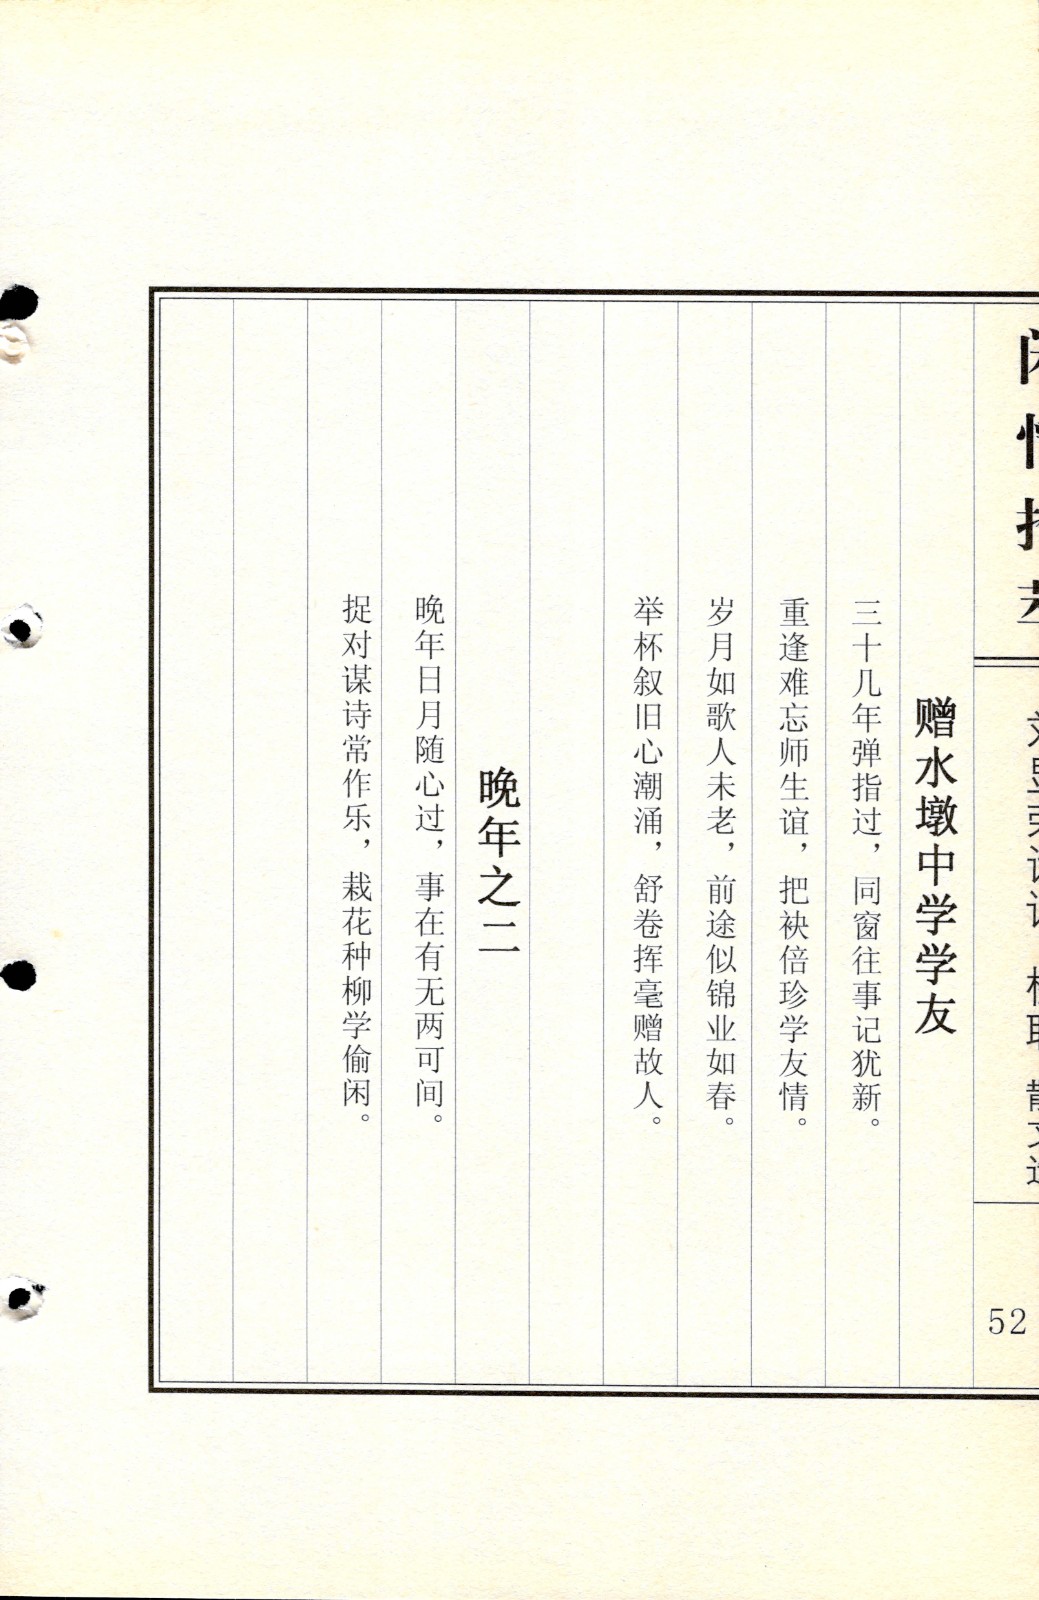 赠水墩中学学友
三十几年弹指过，同窗往事记犹新。
重逢难忘师生谊，把袂倍珍学友情。
岁月如歌人未老，前途似锦业如春。
举杯叙旧心潮涌，舒卷挥毫赠故人。
晚年之二
晚年日月随心过，事在有无两可间。
捉对谋诗常作乐，栽花种柳学偷闲。
52